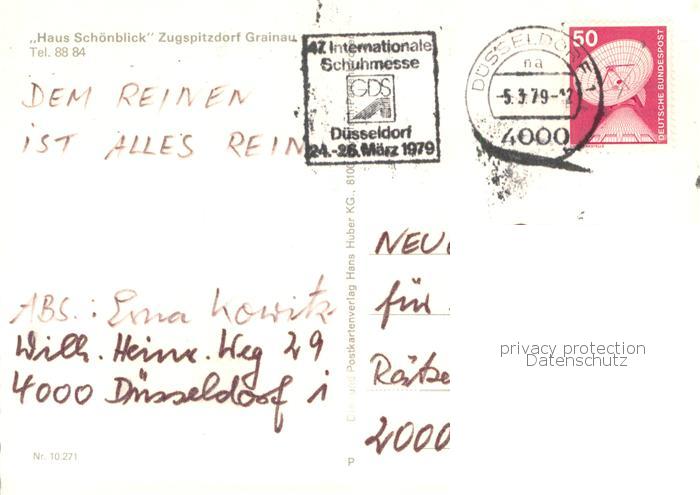 „Haus Schönblick" Zugspitzdorf Grainau
Tel. 88 84
DEM REINEN
IST ALLES REIN
47. Internationale
Schuhmesse
GDS
Düsseldorf
24.-26. März 1979
DÜSSELDORF 1
na
-5.3.79-12
4000
50
DEUTSCHE BUNDESPOST
und Postkartenverlag Hans Huber KG., 8100
NEUE
für
Rätse
2000
ABS.: Erna Kowitz
Wilh. Heinr. Weg 29
4000 Düsseldorf 1
privacy protection
Datenschutz
Nr. 10.271
P